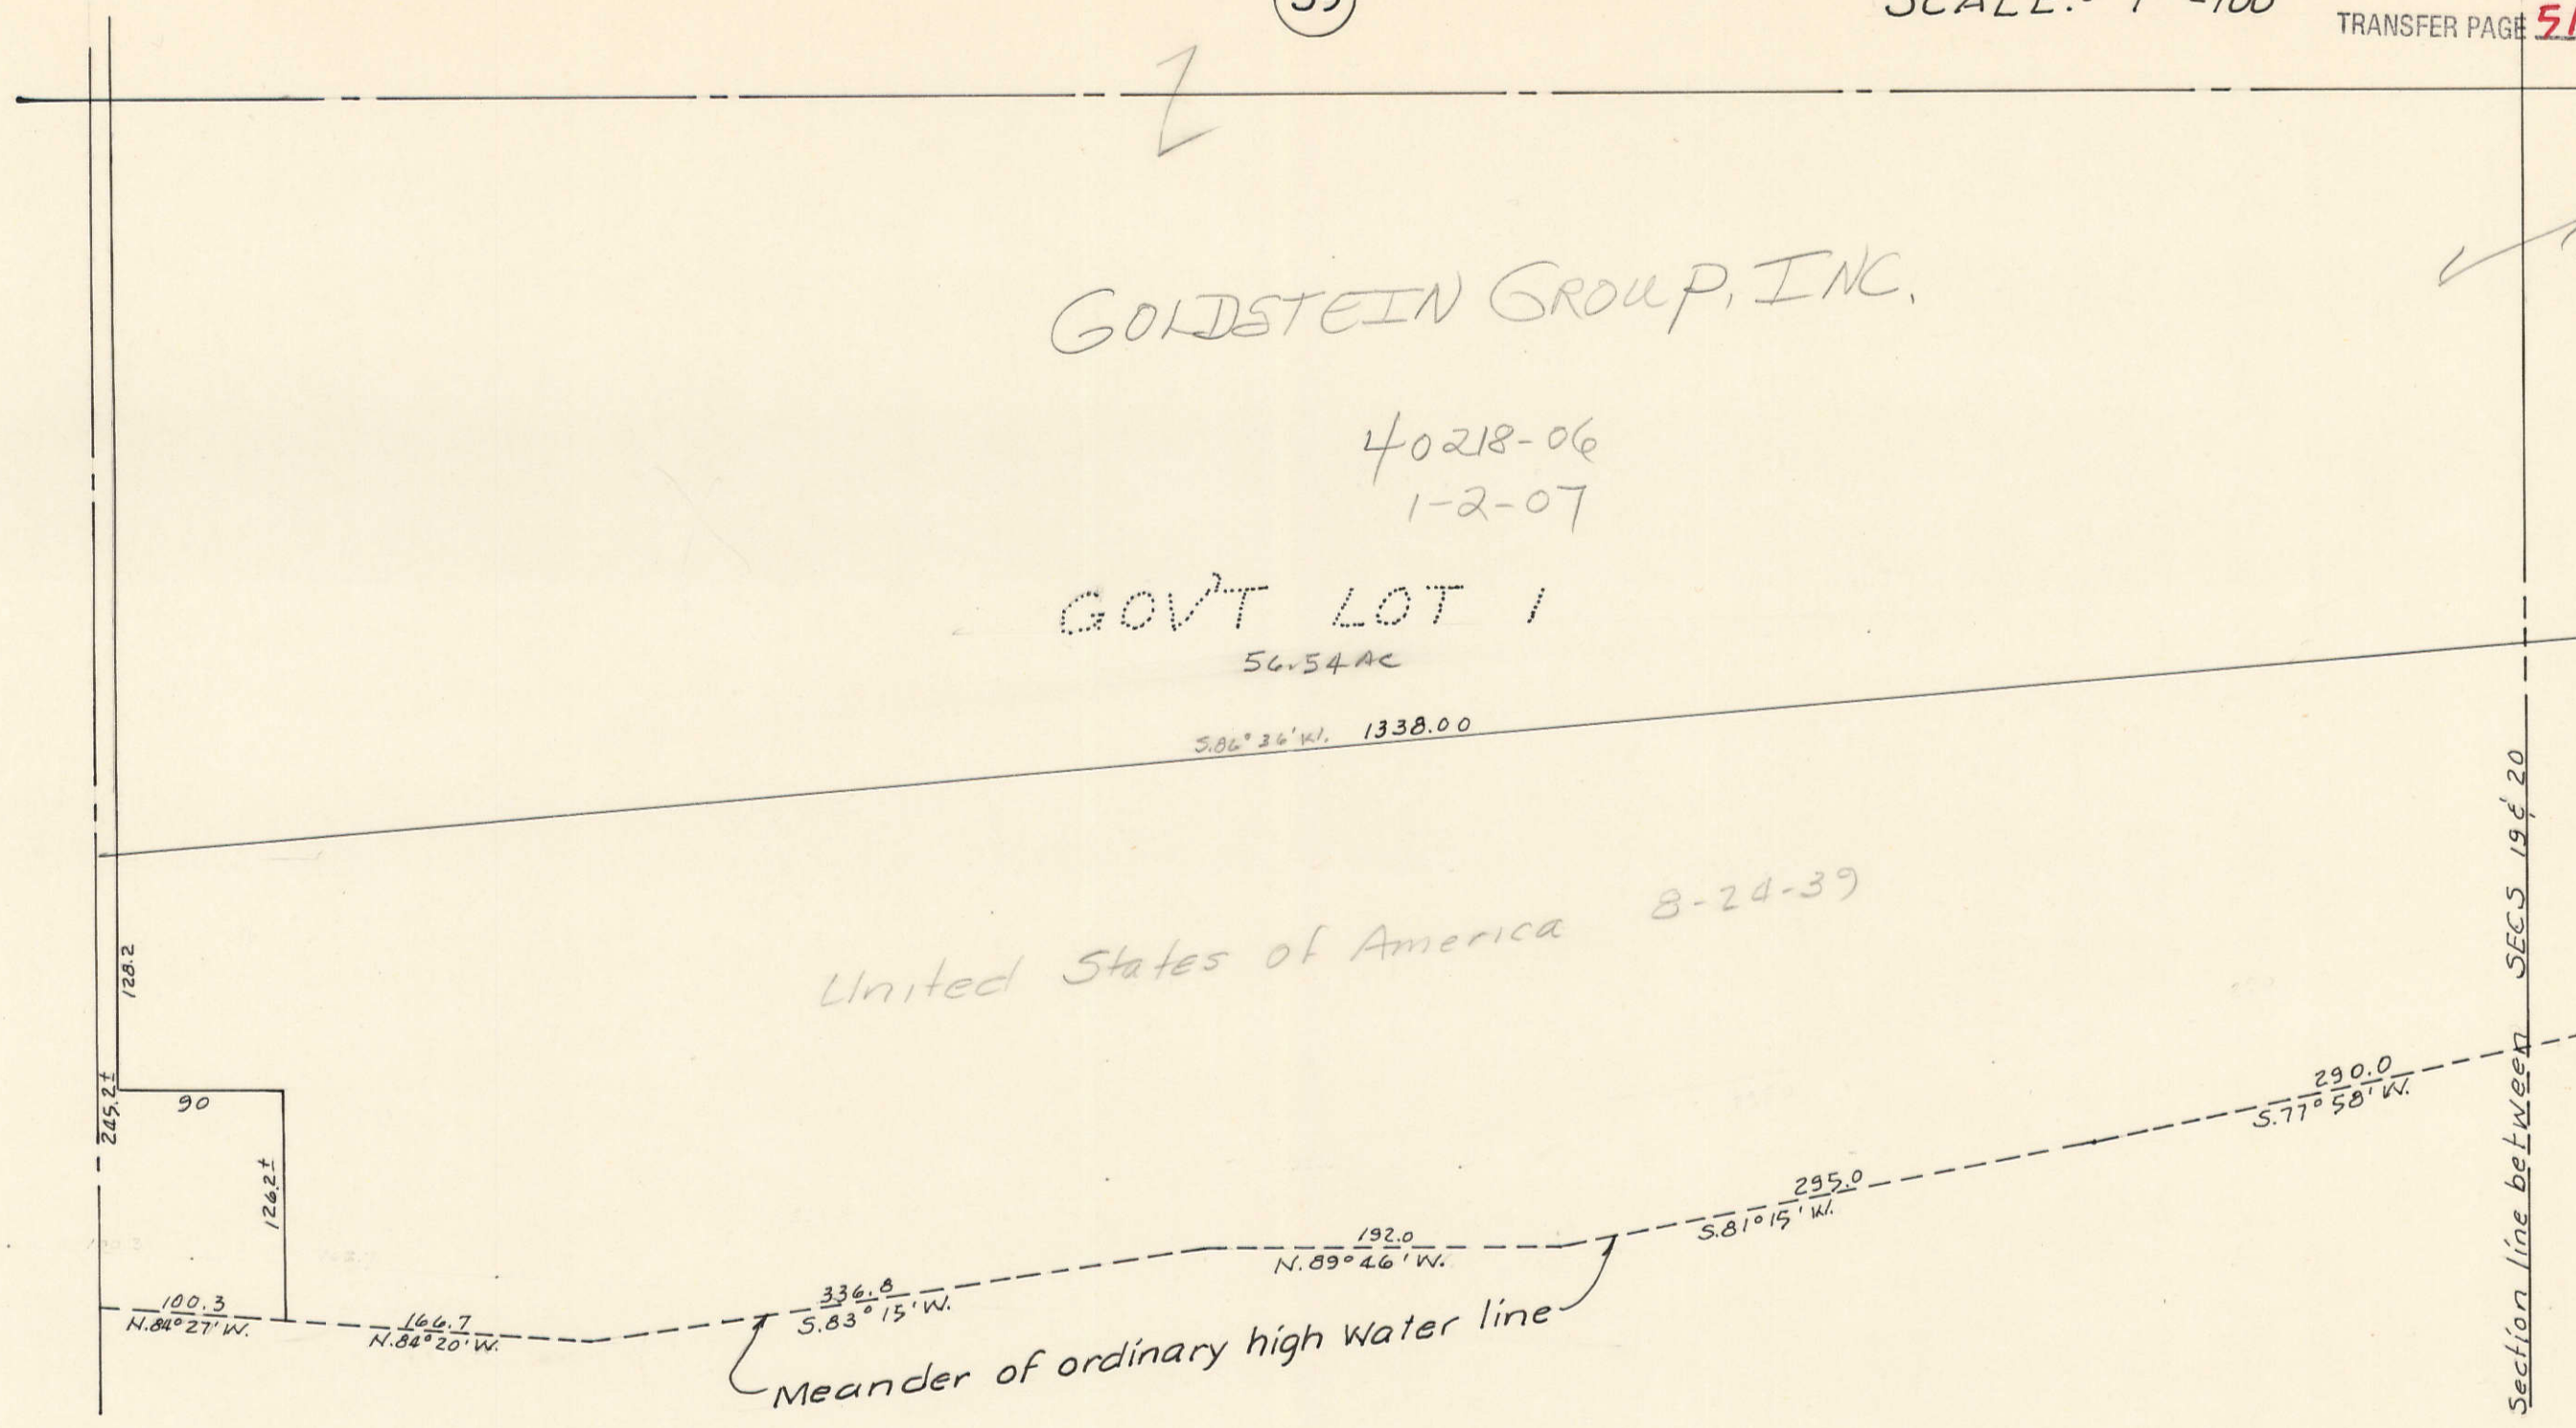 SCALE:- 1"=100'
TRANSFER PAGE 51
GOLDSTEIN GROUP, INC.
40218-06
1-2-07
GOV'T LOT 1
56.54 AC
S.86°36'W. 1338.00
United States of America 8-24-39
128.2
245.2±
90
126.2±
100.3
N.84°27'W.
166.7
N.84°20'W.
336.8
S.83°15'W.
192.0
N.89°46'W.
295.0
S.81°15'W.
290.0
S.77°58'W.
Meander of ordinary high water line
Section line between SECS 19 & 20